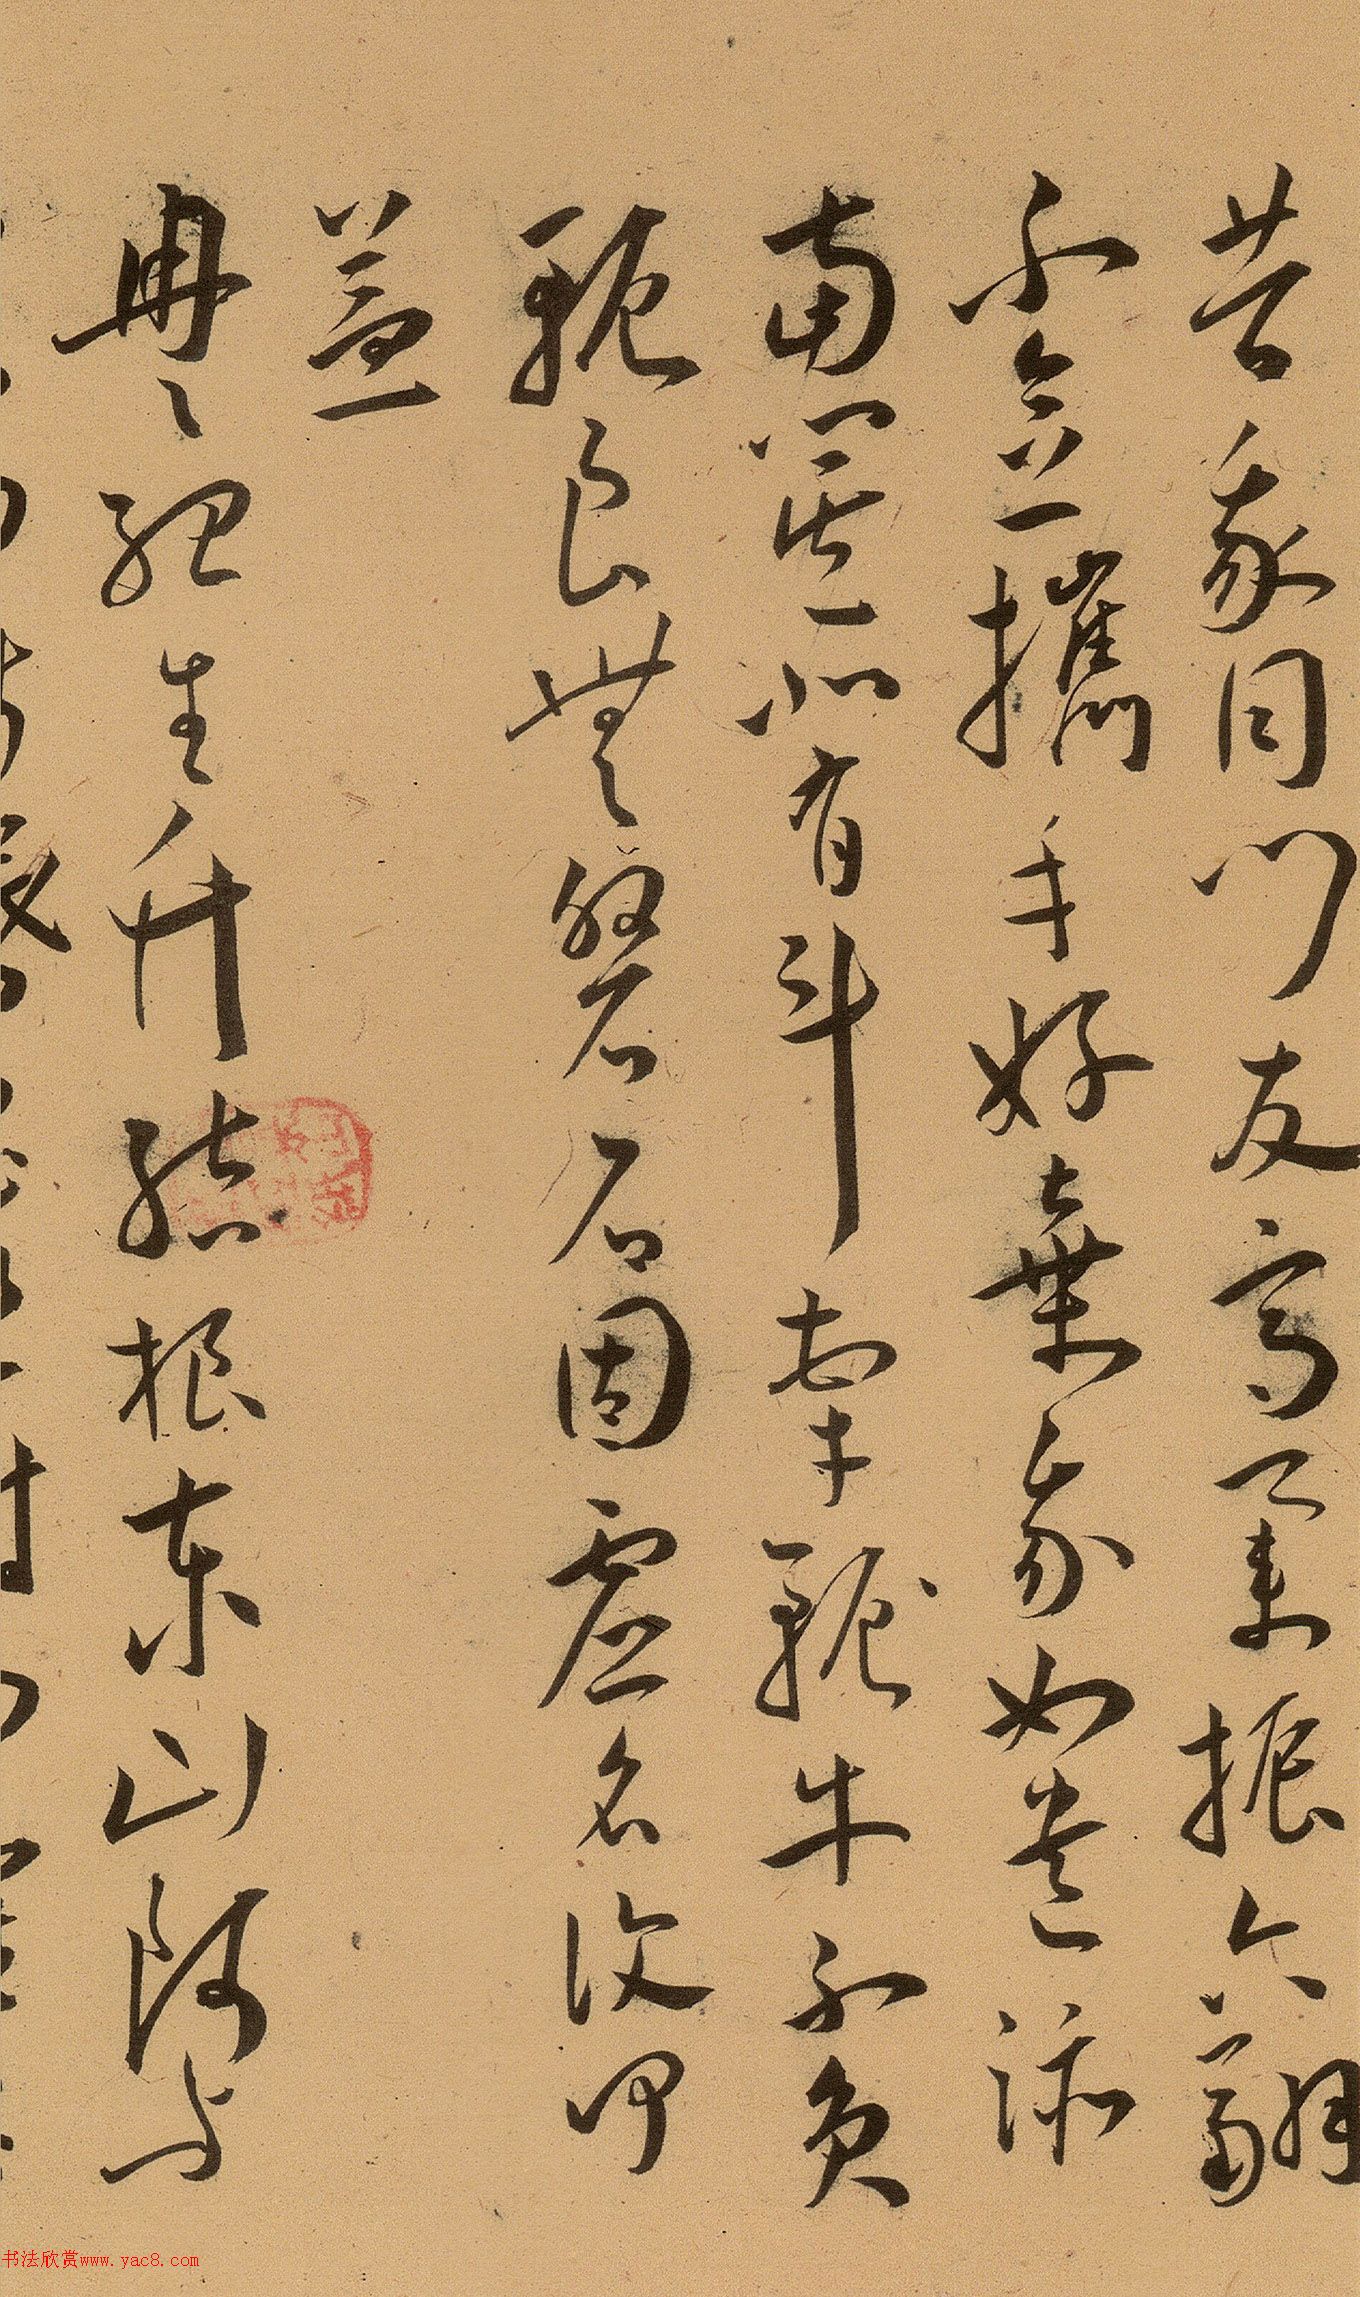 昔我同門友高舉振六翮
不念攜手好棄我如遺跡
南箕北有斗牽牛不負
軛良無磐石固虛名復何
益
冉冉孤生竹結根泰山阿與
书法欣赏www.yac8.com